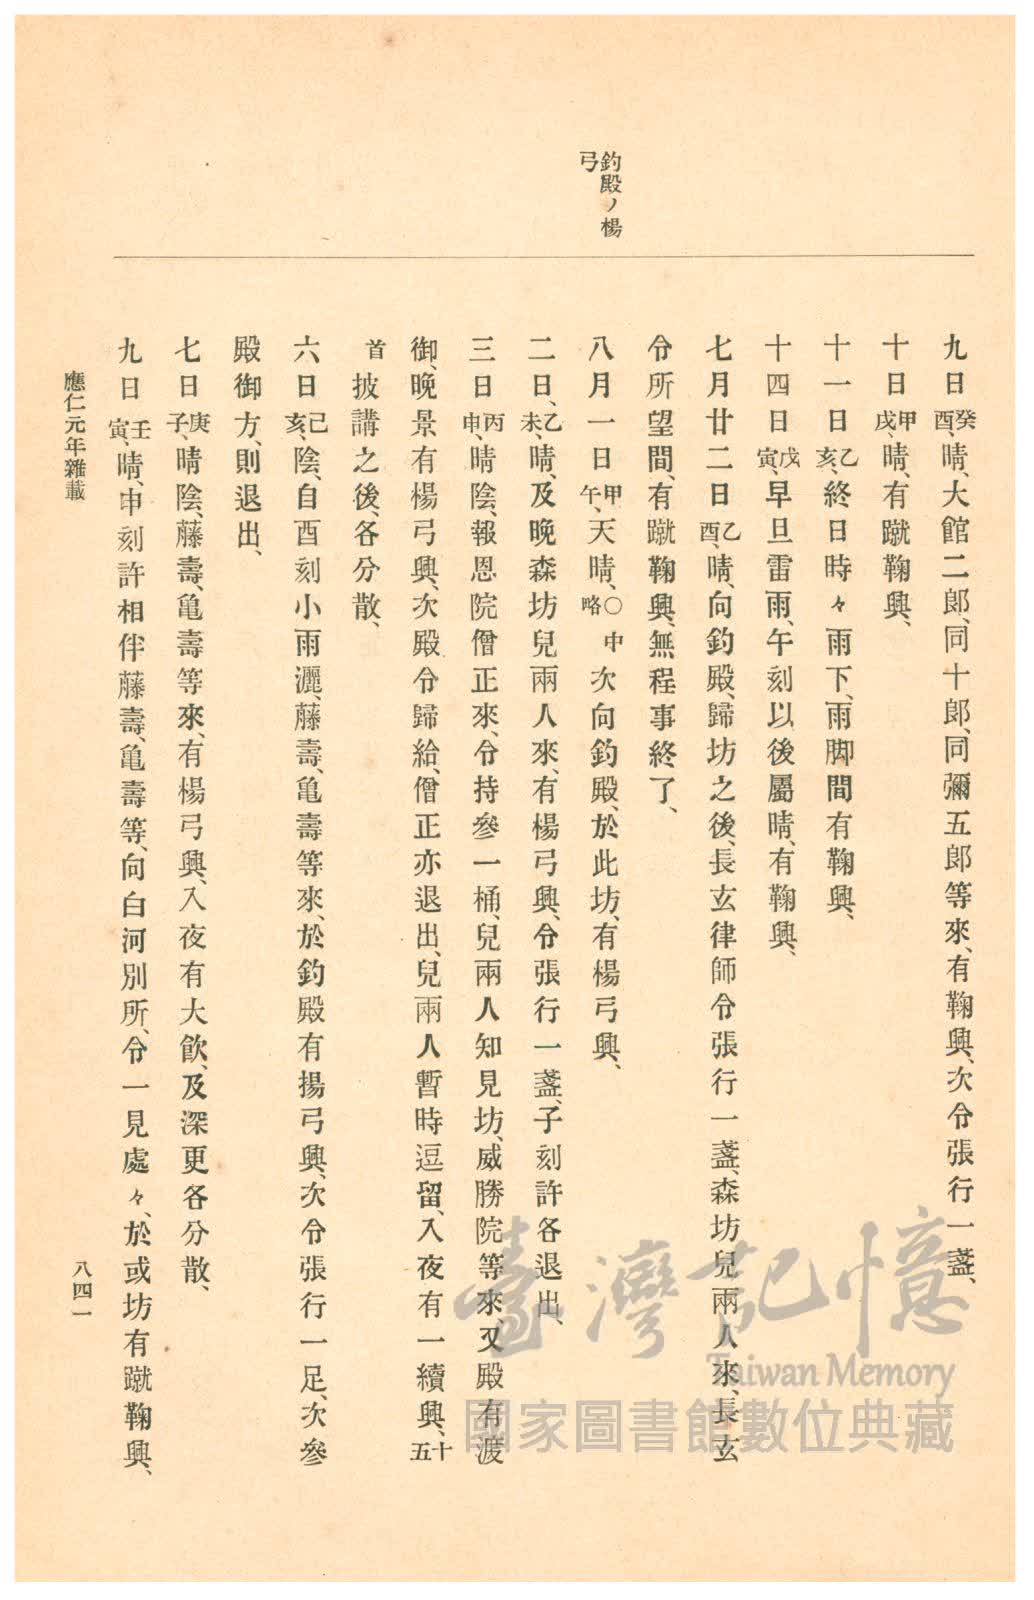 釣殿ノ楊
弓
九日癸酉、晴、大館二郎、同十郎、同彌五郎等來、有鞠興、次令張行一盞、
十日甲戌、晴、有蹴鞠興、
十一日乙亥、終日時々雨下、雨脚間有鞠興、
十四日戊寅、早旦雷雨、午刻以後屬晴、有鞠興、
七月廿二日乙酉、晴、向釣殿、歸坊之後、長玄律師令張行一盞、森坊兒兩人來、長玄
令所望間、有蹴鞠興、無程事終了、
八月一日甲午、天晴、〇中略次向釣殿、於此坊、有楊弓興、
二日、乙未、晴、及晚森坊兒兩人來、有楊弓興、令張行一盞、子刻許各退出、
三日丙申、晴陰、報恩院僧正來、令持參一桶、兒兩人知見坊、威勝院等來、又殿有渡
御、晚景有楊弓興、次殿令歸給、僧正亦退出、兒兩人暫時逗留、入夜有一續興、五十
首披講之後、各分散、
六日己亥、陰、自酉刻小雨灑、藤壽、亀壽等來、於釣殿有揚弓興、次令張行一足、次參
殿御方、則退出、
七日庚子、晴陰、藤壽、亀壽等來、有楊弓興、入夜有大飮、及深更各分散、
九日壬寅、晴、申刻許相伴藤壽、亀壽等、向白河別所、令一見處々、於或坊有蹴鞠興、
應仁元年雜載
八四一
臺灣記憶
Taiwan Memory
國家圖書館數位典藏